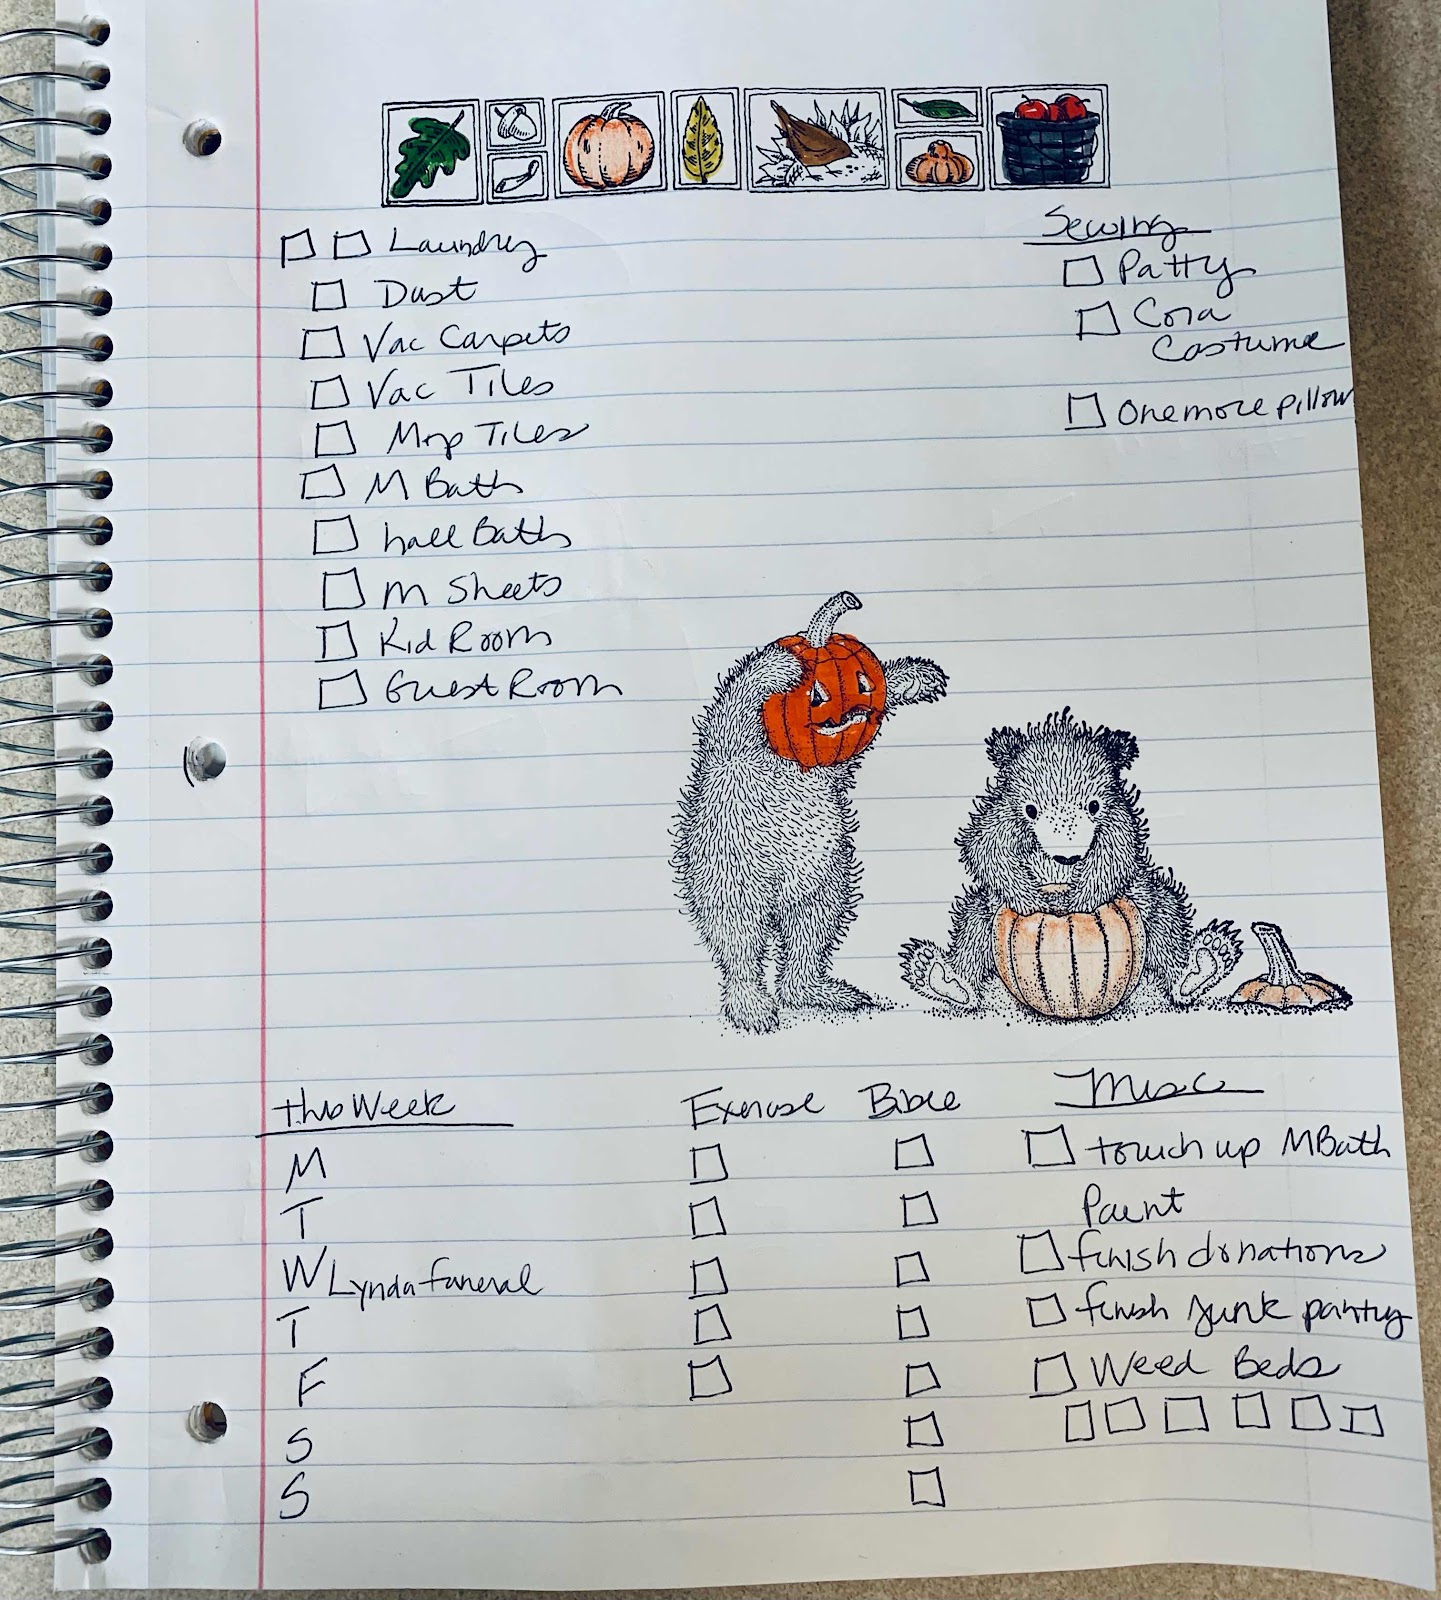 Laundry
Dust
Vac Carpets
Vac Tiles
Mop Tiles
M Bath
hall Bath
M Sheets
Kid Room
Guest Room
Sewing
Patty
Cora
Costume
one more pillow
this Week
M
T
W Lynda funeral
T
F
S
S
Exercise
Bible
Misc
touch up MBath
Paint
finish donations
finish junk pantry
Weed Beds